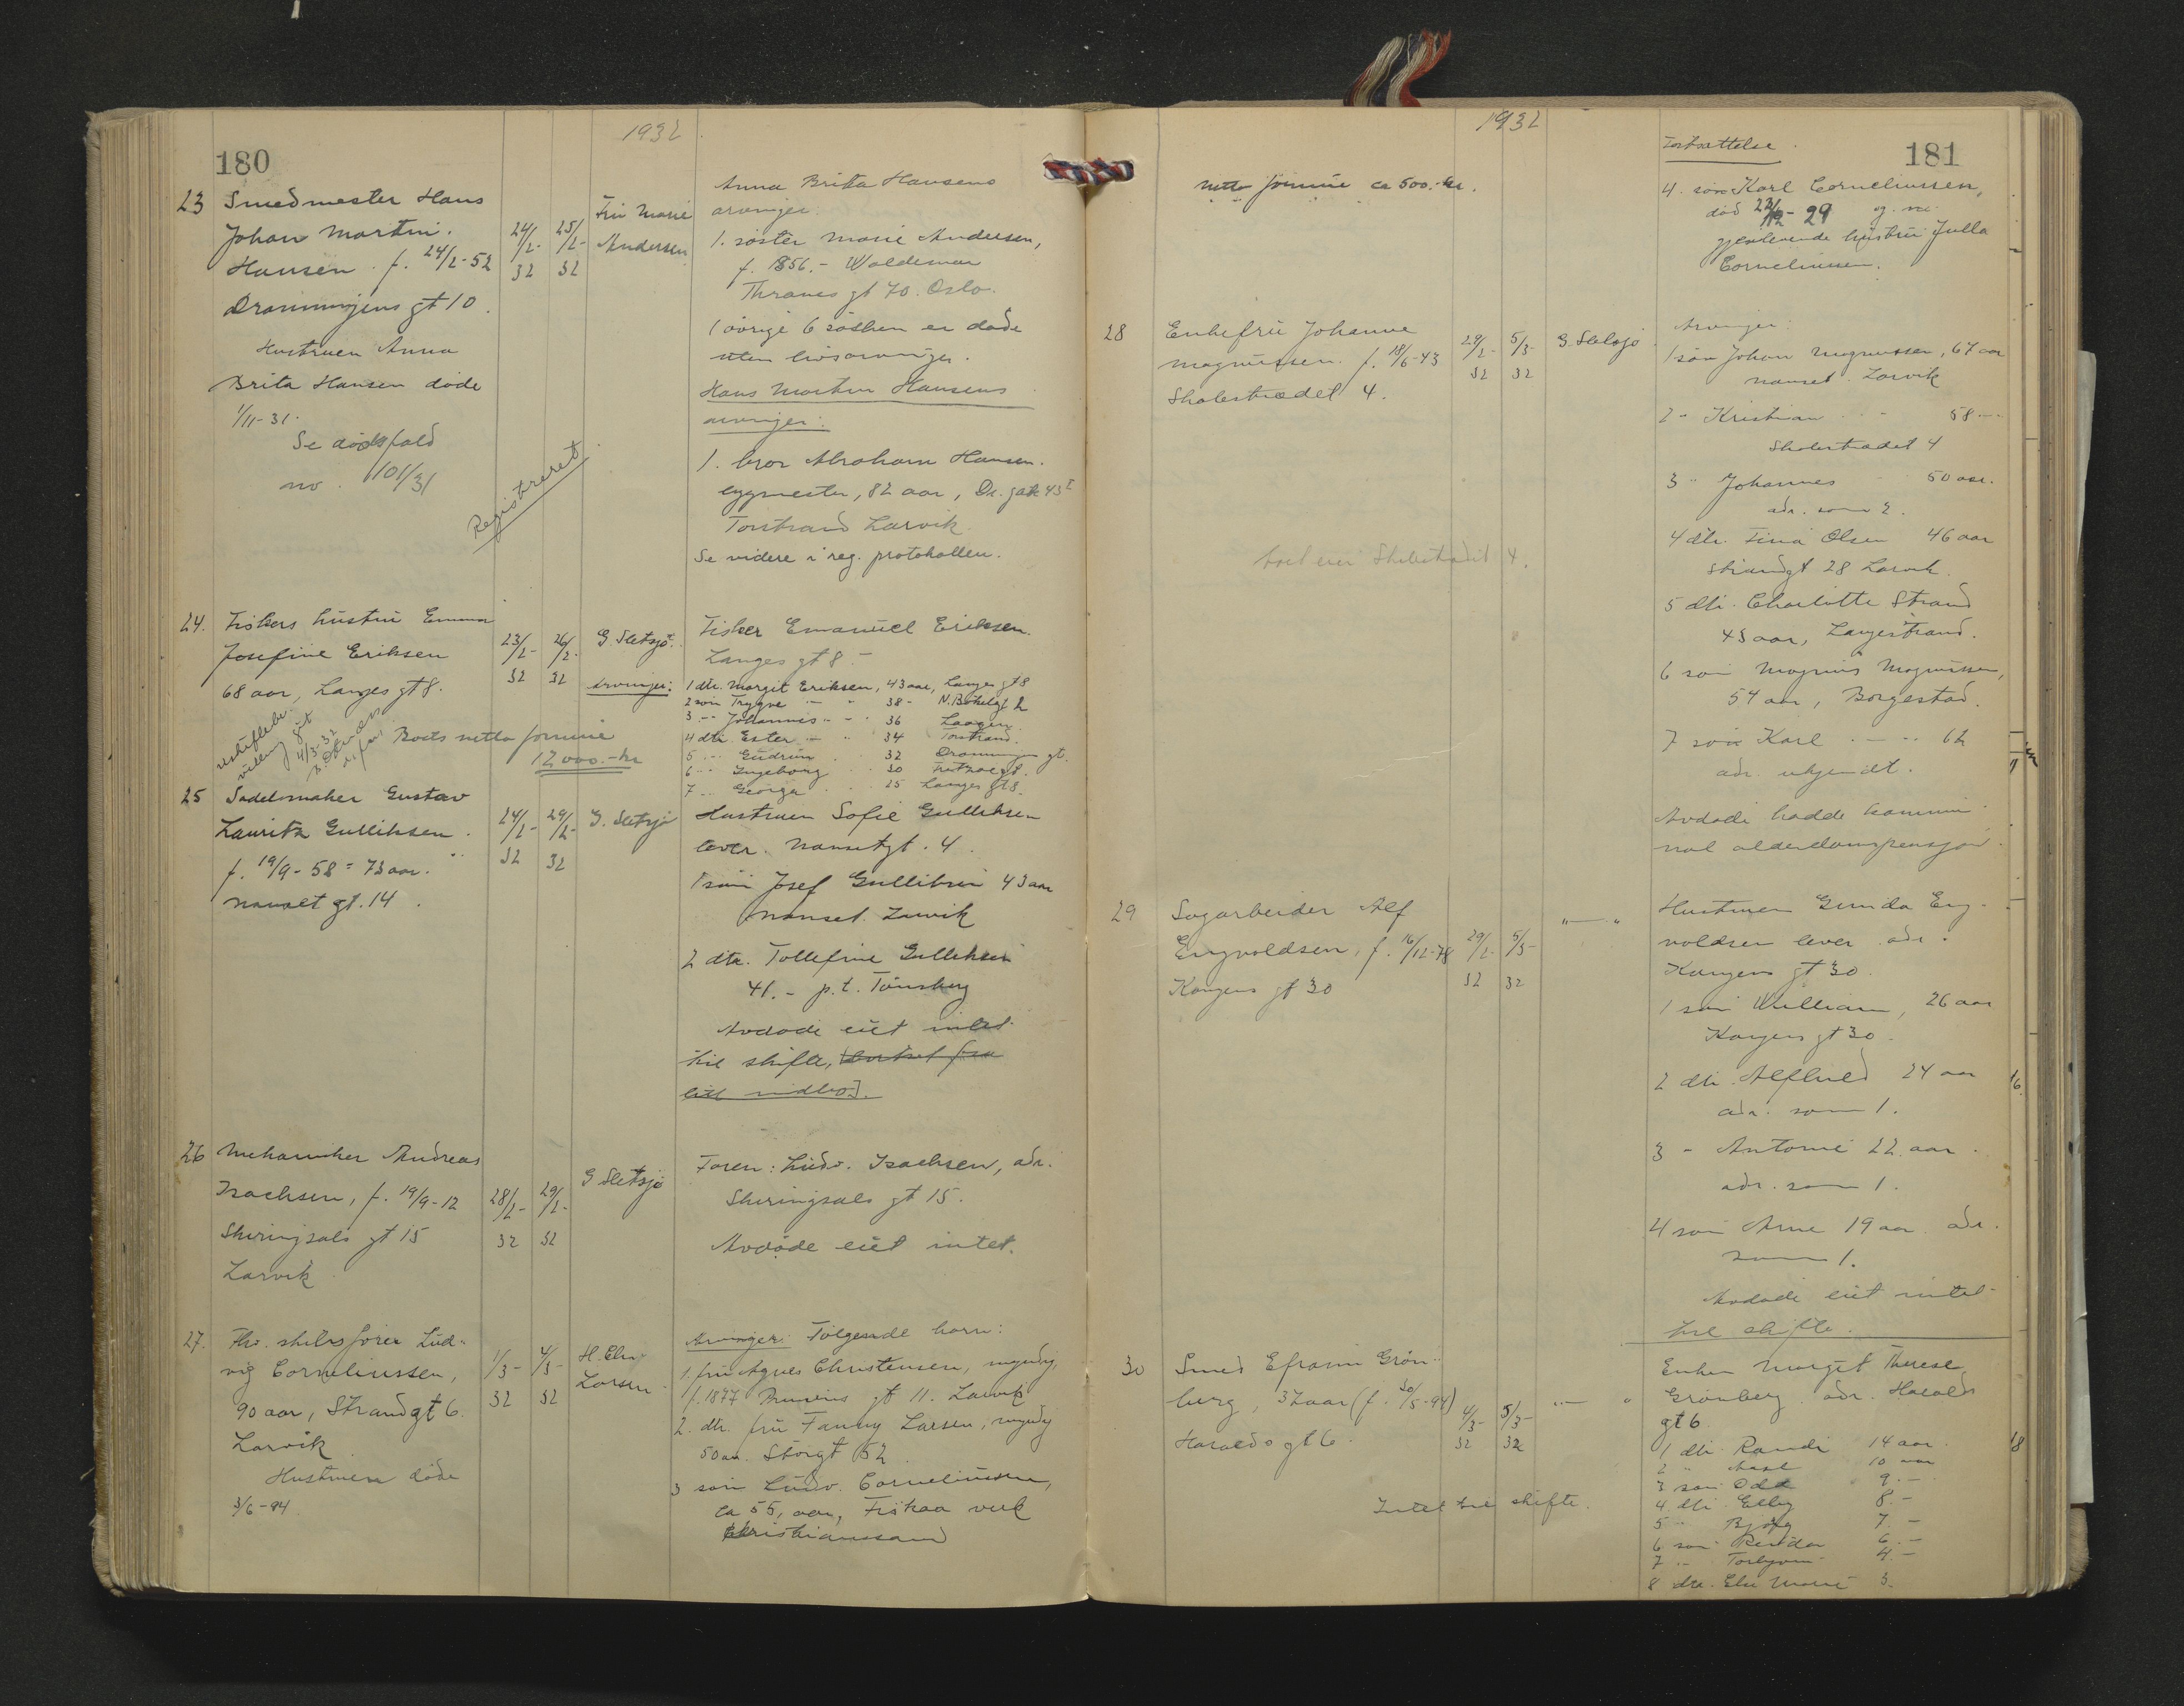 180
1932
23 Smedmester Hans
Johan Martin
Hansen f. 24/2-52
Dronningens gt 10.
Hustruen Anna
Brita Hansen døde
1/11-31.
Se dødsfald
no. 101/31
Registreret
24/2- 32
25/2- 32
Fru Marie
Andersen
Anna Brita Hansens
arvinger.
1. søster Marie Andersen,
f. 1856. - Waldemar
Thranes gt 70. Oslo.
1 øvrige 6 søsken er døde
uten livsarvinger.
Hans Martin Hansens
arvinger:
1. bror Abraham Hansen.
bygmester, 82 aar, Dr. gate 43 I
Torstrand Larvik
Se videre i reg. protokollen.
24. Fiskers hustru Emma
Josefine Eriksen
68 aar, Langes gt 8.
4/3-32
Boets netto formue
12000.-kr
23/2- 32
26/2- 32
G. Sletsjø
Arvinger:
Fisker Emanuel Eriksen.
Langes gt 8 -
1 dtr. Margit Eriksen, 43 aar, Langes gt 8
2 søn Trygve - " 38 -
3 -" Johannes " - 36 Laagen
4 dtr. Ester - " 34 Torstrand.
5 -" Gudrun 32 Dronningens gt.
6 -" Ingeborg 30
7 -" Georga 25 Langes gt 8.
25 Sadelmaker Gustav
Lauritz Gulliksen.
f. 19/9-58 = 73 aar.
Nanset gt. 14.
24/2- 32
29/2- 32
G. Sletsjø
Hustruen Sofie Gulliksen
lever. Nansetgt. 4.
1 søn Josef Gulliksen 43 aar
Nanset. Larvik
2 dtr. Tollefine Gulliksen
41. - p.t. Tønsberg
Avdøde eiet intet
til skifte, bortset fra
litt indbo].
26 Mekaniker Andreas
Isachsen, f. 19/9-12
Skiringsals gt 15
Larvik
28/2- 32
29/2- 32
G Sletsjø
Faren: Ludv. Isachsen, adr.
Skiringsals gt 15.
Avdøde eiet intet.
27. Fhv. skibsfører Lud-
vig Corneliussen,
90 aar, Strandgt 6.
Larvik
Hustruen døde
3/6-94.
1/3- 32
4/3- 32
H.
Larsen
Arvinger: Følgende barn:
1. fru Agnes Christensen, myndig,
f. 1877 gt 11. Larvik
2. dtr. fru Fanny Larsen, myndig
50 aar. Storgt 52
3 søn Ludv. Corneliussen,
ca 55, aar, Fiskaa verk
Christianssand
1932
181
netto formue ca 500.-kr.
Fortsættelse.
4. søn Karl Corneliussen,
død 22/12-29
gjenlevende hustru Julla
Corneliussen.
28 Enkefru Johanne
Magnussen. f. 18/6-43
Skolestrædet 4.
29/2- 32
5/3- 32
G. Sletsjø
Arvinger:
1 søn Johan Magnussen, 67 aar
Nanset. Larvik
2 - Kristian - 58 -
Skolestrædet 4
3 " Johannes - 50 aar.
adr. som 2.
4 dtr. Fina Olsen 46 aar
Strandgt 28 Larvik.
5 dtr. Charlotte Strand
43 aar, Langestrand.
6 søn Magnus Magnussen,
54 aar, Borgestad.
7 søn Karl - - 62
adr. ukjendt.
Avdøde hadde kommu-
nal alderdomspensjon.
boet eier Skolestrædet 4.
29 Sagarbeider Alf
Engvoldsen, f. 16/12-78
Kongens gt 30
29/2- 32
5/3- 32
" — "
Hustruen Gunda Eng-
voldsen lever adr.
Kongens gt 30
1 søn William, 26 aar
Kongens gt 30.
2 dtr. Alfhild 24 aar
adr. som 1.
3 - Antonie 22 aar.
adr. som 1.
4 søn Arne 19 aar adr.
som 1.
Avdøde eiet intet
til skifte.
30 Smed Efraim Grøn-
berg, 37 aar (f. 30/5-94)
Haralds gt 6.
4/3- 32
5/3- 32
" — "
Intet til skifte.
Enken Margit Therese
Grønberg adr. Haralds
gt 6.
1 dtr. Randi 14 aar
2 " 10 aar
3 søn Odd 9.-
4 dtr. Elly 8.-
5 " Bjørg 7.-
6 søn Reidar 6.-
7 " Torbjørn 4.-
8 dtr. Else Marie 3.
16.
18